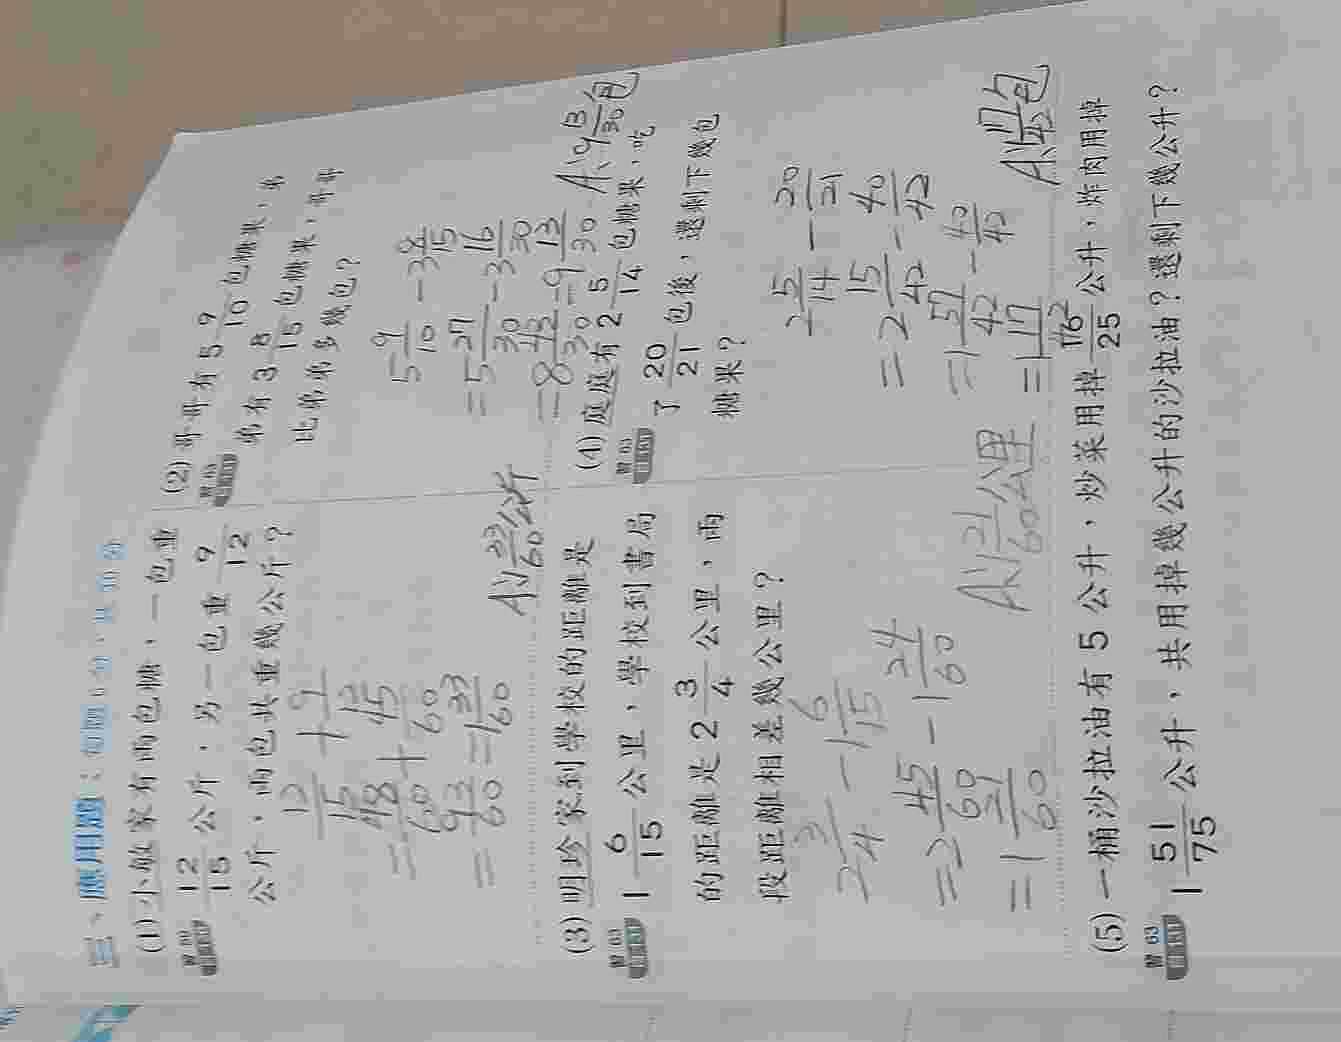 三、應用題：每題6分，共30分
(1) 小敏家有兩包糖，一包重
12/15 公斤，另一包重 9/12
公斤，兩包共重幾公斤？
12/15 + 9/12
= 48/60 + 45/60
= 93/60 = 1 33/60
A：1 33/60 公斤
(2) 哥哥有 5 9/10 包糖果，弟
弟有 3 8/15 包糖果，哥哥
比弟弟多幾包？
5 9/10 - 3 8/15
= 5 27/30 - 3 16/30
= 8 43/30 = 9 13/30
A：9 13/30 包
(3) 明珍家到學校的距離是
習 63
1 6/15 公里，學校到書局
的距離是 2 3/4 公里，兩
段距離相差幾公里？
2 3/4 - 1 6/15
= 2 45/60 - 1 24/60
= 1 21/60
A：1 21/60 公里
(4) 庭庭有 2 5/14 包糖果，吃
習 63
了 20/21 包後，還剩下幾包
糖果？
2 5/14 - 20/21
= 2 15/42 - 40/42
= 1 57/42 - 40/42
= 1 17/42
包
(5) 一桶沙拉油有 5 公升，炒菜用掉 1 16/25 公升，炸肉用掉
習 63
1 51/75 公升，共用掉幾公升的沙拉油？還剩下幾公升？